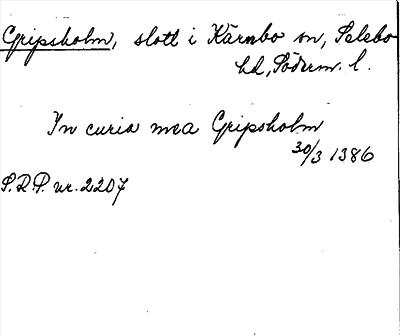 Gripsholm, slott i Kärnbo sn, Selebo
hd, Söderm. l.
In curia mea Gripsholm
30/3 1386
S.R.P. nr. 2207